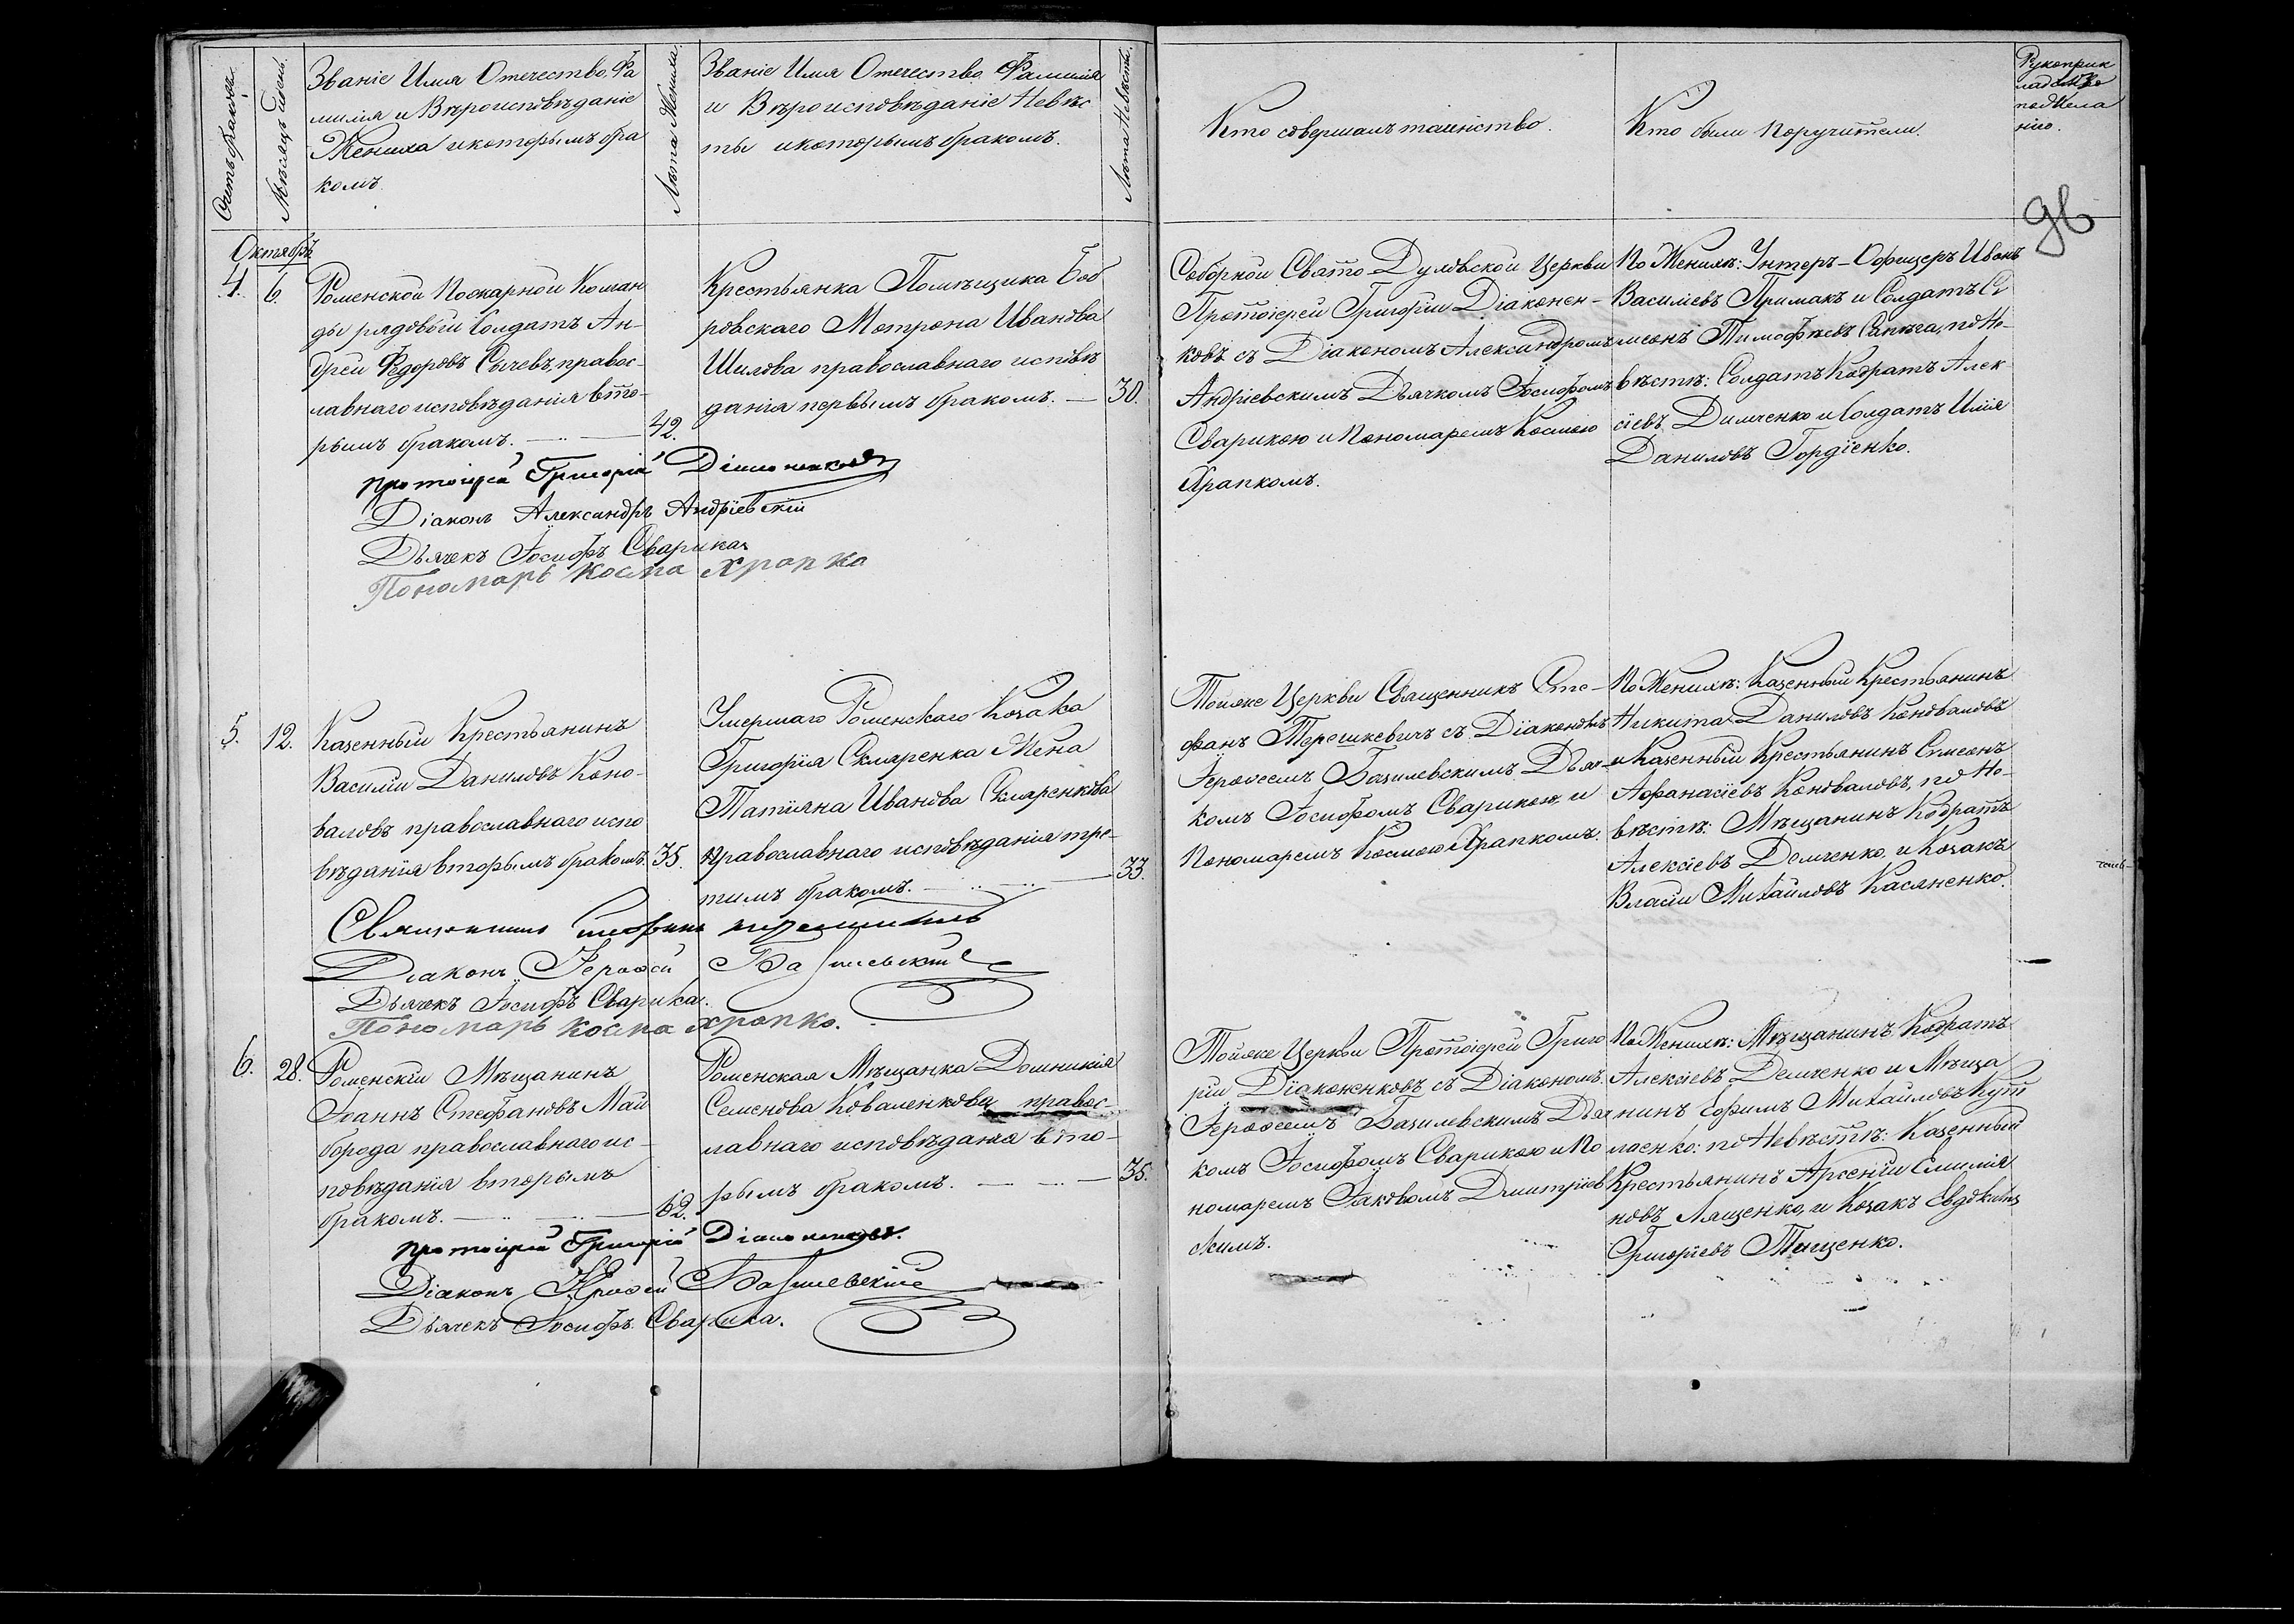 Счетъ браковъ.
Мѣсяцъ и день.
Званіе Имя Отечество, Фа
милія и Вѣроисповѣданіе
Жениха и которымъ бра
комъ.
Лѣта Жениха.
Званіе Имя Отечество Фамилія
и Вѣроисповѣданіе Невѣс
ты и которымъ бракомъ.
Лѣта Невѣсты.
Кто совершалъ таинство.
Кто были поручители.
Рукоприк
ладство
по жела
нію.
Октябрь
4.
6.
Роменской пожарной Коман
ды рядовый Солдатъ Ан-
дрей Федоровъ Сычевъ, правос-
лавнаго исповѣданія вто-
рымъ бракомъ.
42.
Крестьянка Помѣщика Боб
ровскаго Мотрона Иванова
Шилова православнаго исповѣ
данія первымъ бракомъ.
30.
Соборной Свято Духовской Церкви
Протоіерей Григорій Діаконен-
ковъ съ Діакономъ Александромъ
Андріевскимъ Дьячкомъ Іосифомъ
Сварикою и Пономаремъ Космою
Храпкомъ.
По Женихѣ: Унтеръ-Офицеръ Иванъ
Василіевъ Примакъ и Солдатъ Си
меонъ Тимофѣевъ Сапѣга, по Не-
вѣстѣ: Солдатъ Кодратъ Алек
сіевъ Димченко и Солдатъ Илія
Даниловъ Гордіенко.
Протоіерей Григорій Діаконенковъ
Діаконъ Александръ Андріевскій
Дьячекъ Іосифъ Сварика
Пономарь Косма Храпко
5.
12.
Казенный Крестьянинъ
Василій Даниловъ Коно-
валовъ православнаго испо
вѣданія вторымъ бракомъ.
35.
Умершаго Роменскаго Козака
Григорія Скляренка Жена
Татіяна Иванова Скляренкова
православнаго исповѣданія тре-
тимъ бракомъ.
33.
Тойже Церкви Священникъ Сте-
фанъ Терешкевичъ съ Діакономъ
Іероѳеемъ Базилевскимъ Дьяч-
комъ Іосифомъ Сварикою, и
Пономаремъ Космою Храпкомъ.
По Женихѣ: Казенный Крестьянинъ
Никита Даниловъ Коноваловъ
и Казенный Крестьянинъ Симеонъ
Афанасіевъ Коноваловъ, по Не-
вѣстѣ: Мѣщанинъ Кодратъ
Алексіевъ Демченко и Козакъ
Власій Михайловъ Касяненко.
Священникъ Стефанъ Терешкевичъ
Діаконъ Іероѳей Базилевскій
Дьячекъ Іосифъ Сварика.
Пономарь Косма Храпко.
6.
28.
Роменскій Мѣщанинъ
Іоаннъ Стефановъ Май
борода православнаго ис-
повѣданія вторымъ
бракомъ.
62.
Роменская Мѣщанка Домникія
Семенова Коваленкова правос-
лавнаго исповѣданія вто-
рымъ бракомъ.
35.
Тойже Церкви Протоіерей Григо
рій Діаконенковъ съ Діакономъ
Іероѳеемъ Базилевскимъ Дьяч
комъ Іосифомъ Сварикою и По
номаремъ Іаковомъ Дмитріев
скимъ.
По Женихѣ: Мѣщанинъ Кодратъ
Алексіевъ Демченко и Мѣща
нинъ Ефимъ Михайловъ
по Невѣстѣ: Казенный
Крестьянинъ Арсеній Емилія
новъ Лященко, и Козакъ Евдокимъ
Григоріевъ Тищенко.
Протоіерей Григорій Діаконенковъ.
Діаконъ Іероѳей Базилевскій
Дьячекъ Іосифъ Сварика.